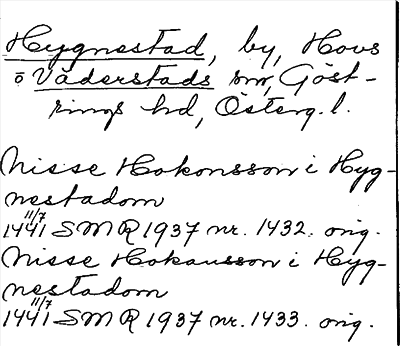 Hygnestad, by, Hovs
o Väderstads snr, Göst-
rings hd, Österg. l.
Nisse Hokonsson i Hyg-
nestadom
11/7
1441 SMR 1937 nr. 1432. orig.
Nisse Hokausson i Hyg-
nestadom
11/7
1441 SMR 1937 nr. 1433. orig.